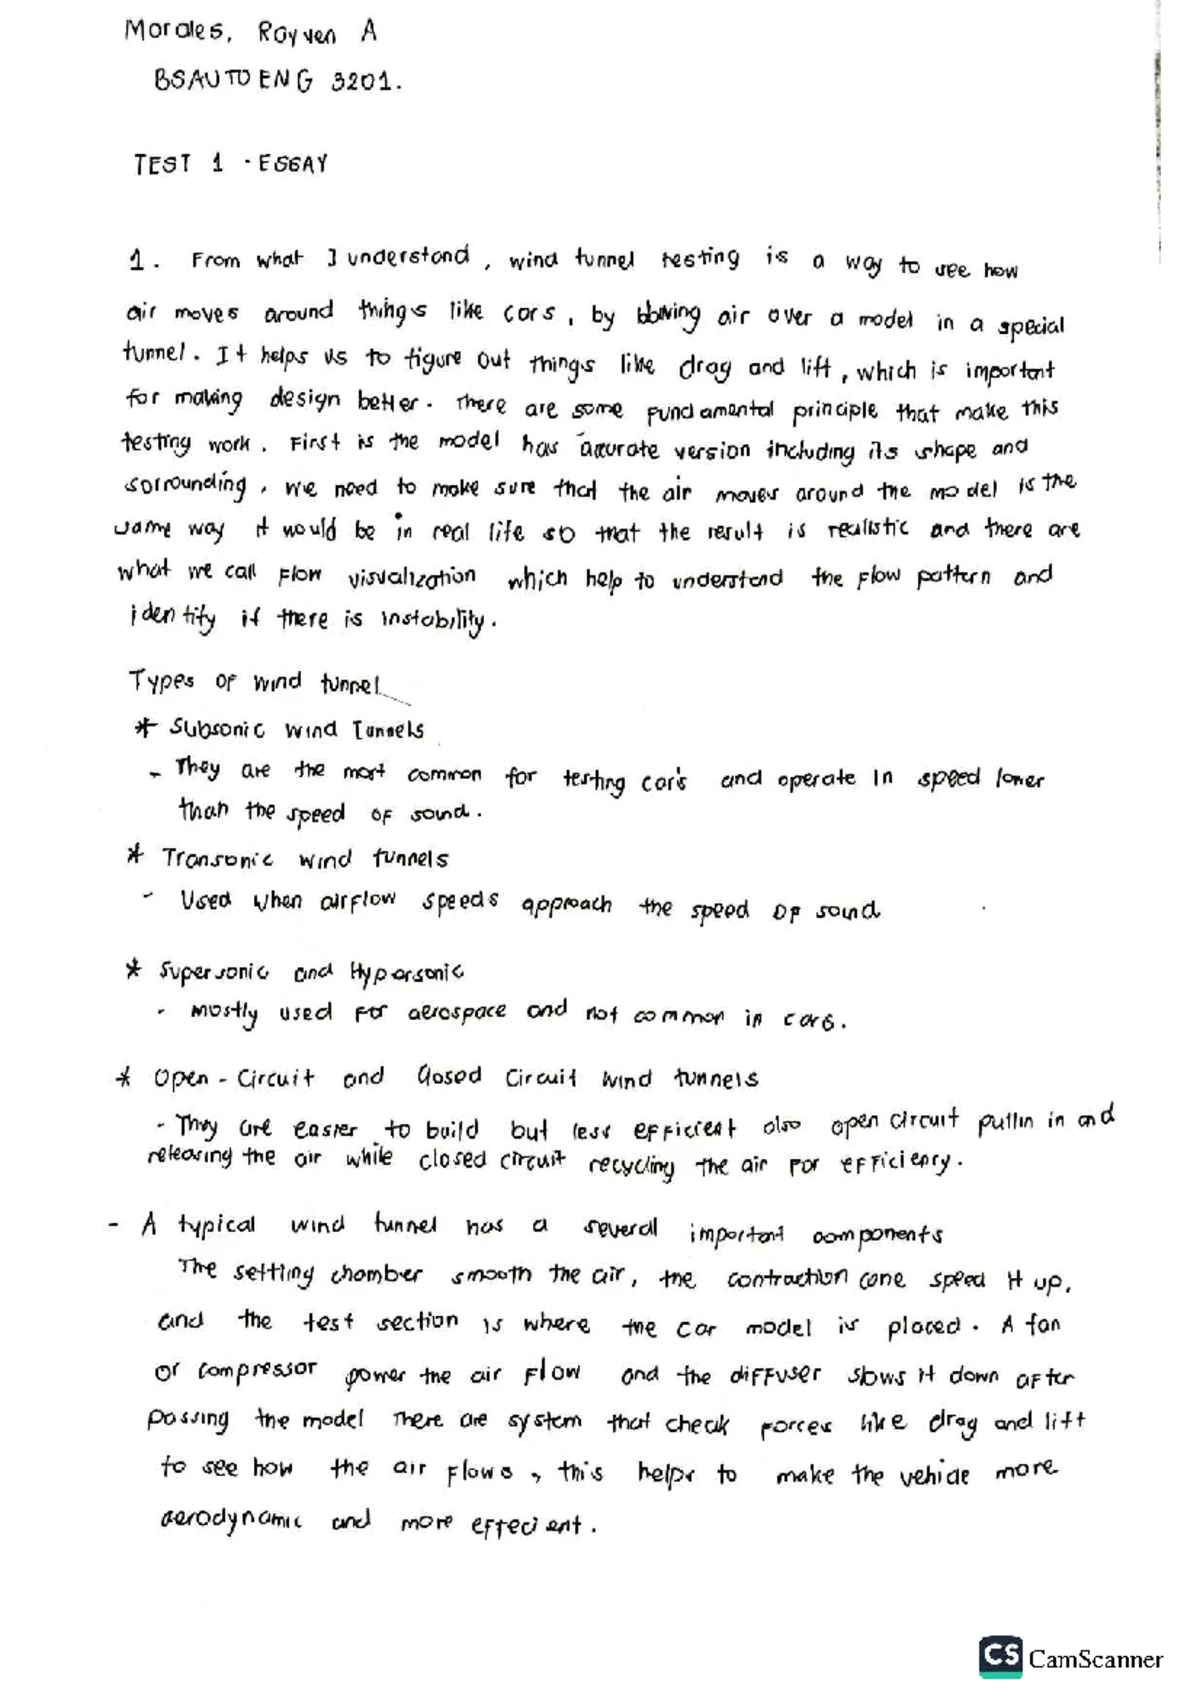 Morales, Rayven A
BSAUTOENG 3201.
TEST 1 - ESSAY
1. From what I understand, wind tunnel testing is a way to see how
air moves around things like cars, by blowing air over a model in a special
tunnel. It helps us to figure out things like drag and lift, which is important
for making design better. There are some fundamental principle that make this
testing work. First is the model has accurate version including its shape and
sorrounding, we need to make sure that the air moves around the model is the
same way it would be in real life so that the result is realistic and there are
what we call flow visualization which help to understand the flow pattern and
identify if there is instability.
Types of wind tunnel
* Subsonic wind Tunnels
- They are the most common for testing cars and operate in speed lower
than the speed of sound.
* Transonic wind tunnels
- Used when airflow speeds approach the speed of sound
* Supersonic and Hypersonic
- mostly used for aerospace and not common in cars.
* Open-Circuit and Closed Circuit wind tunnels
- They are easier to build but less efficient also open circuit pullin in and
releasing the air while closed circuit recycling the air for efficiency.
- A typical wind tunnel has a several important components
The settling chamber smooth the air, the contraction cone speed it up,
and the test section is where the car model is placed. A fan
or compressor power the air flow and the diffuser slows it down after
passing the model There are system that check forces like drag and lift
to see how the air flows, this helps to make the vehicle more
aerodynamic and more effecient.
CS CamScanner